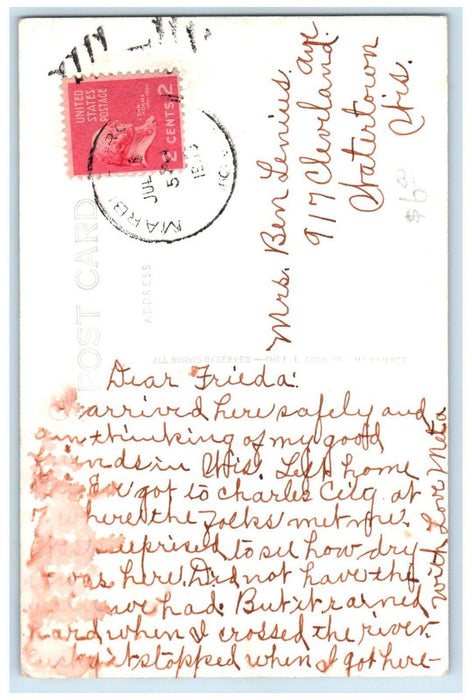 UNITED
STATES
POSTAGE
2 CENTS 2
JUL
5
MARB
POST CARD
ADDRESS
Mrs. Ben Lenius.
917 Cleveland Ave
Watertown
Wis.
$6.00
ALL RIGHTS RESERVED — THE L. L. COOK CO.
Dear Frieda:
arrived here safely and
am thinking of my good
friends in Wis. Left home
got to Charles City at
where the folks met me.
Was suprised to see how dry
it was here. Did not have the
we had. But it rained
hard when I crossed the river
it stopped when I got here-
With Love Meta